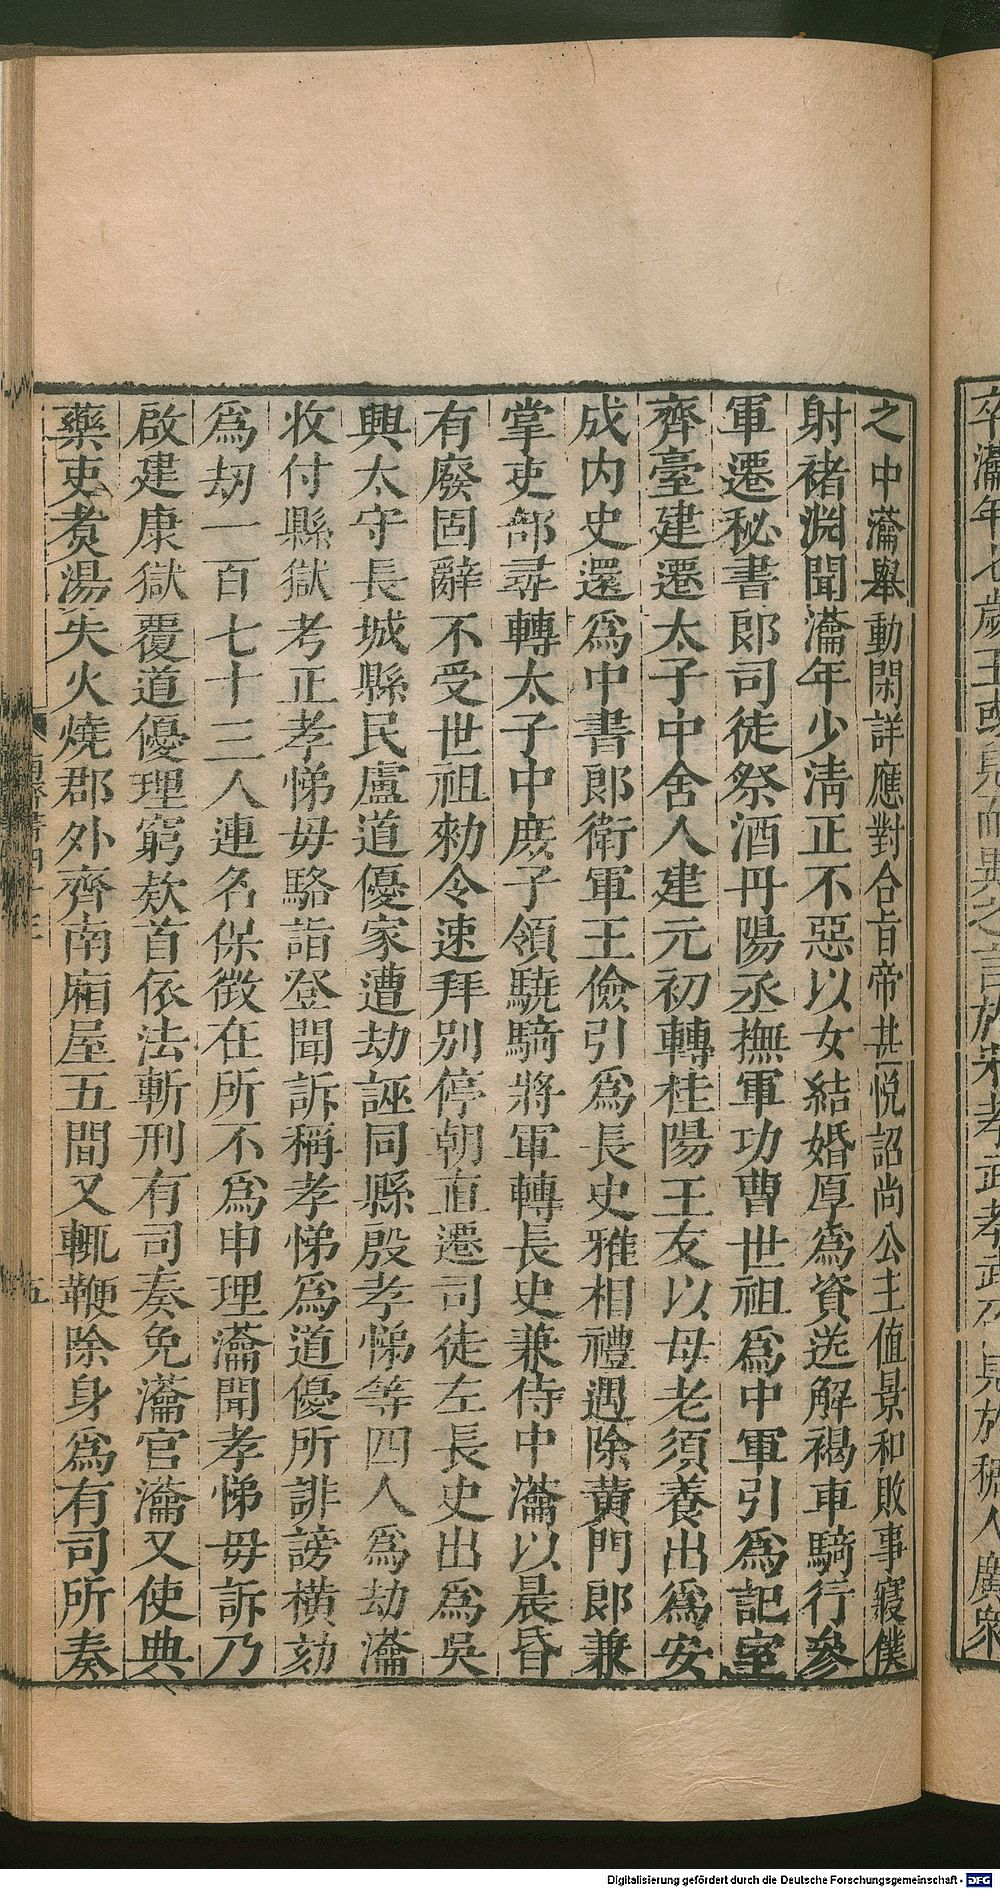 之中瀹舉動閑詳應對合旨帝甚悅詔尚公主值景和敗事寢僕
射褚淵聞瀹年少清正不惡以女結婚厚爲資送解褐車騎行參
軍遷秘書郎司徒祭酒丹陽丞撫軍功曹世祖爲中軍引爲記室
齊臺建遷太子中舍人建元初轉桂陽王友以母老須養出爲安
成內史還爲中書郎衛軍王儉引爲長史雅相禮遇除黃門郎兼
掌吏部尋轉太子中庶子領驍騎將軍轉長史兼侍中瀹以晨昏
有廢固辭不受世祖勑令速拜別停朝直遷司徒左長史出爲吳
興太守長城縣民盧道優家遭劫誣同縣殷孝悌等四人爲劫瀹
收付縣獄考正孝悌母駱詣登聞訴稱孝悌爲道優所誹謗橫劾
爲劫一百七十三人連名保徵在所不爲申理瀹聞孝悌母訴乃
啟建康獄覆道優理窮欵首依法斬刑有司奏免瀹官瀹又使典
藥吏煮湯失火燒郡外齊南廂屋五間又輒鞭除身爲有司所奏
五
Digitalisierung gefördert durch die Deutsche Forschungsgemeinschaft - DFG